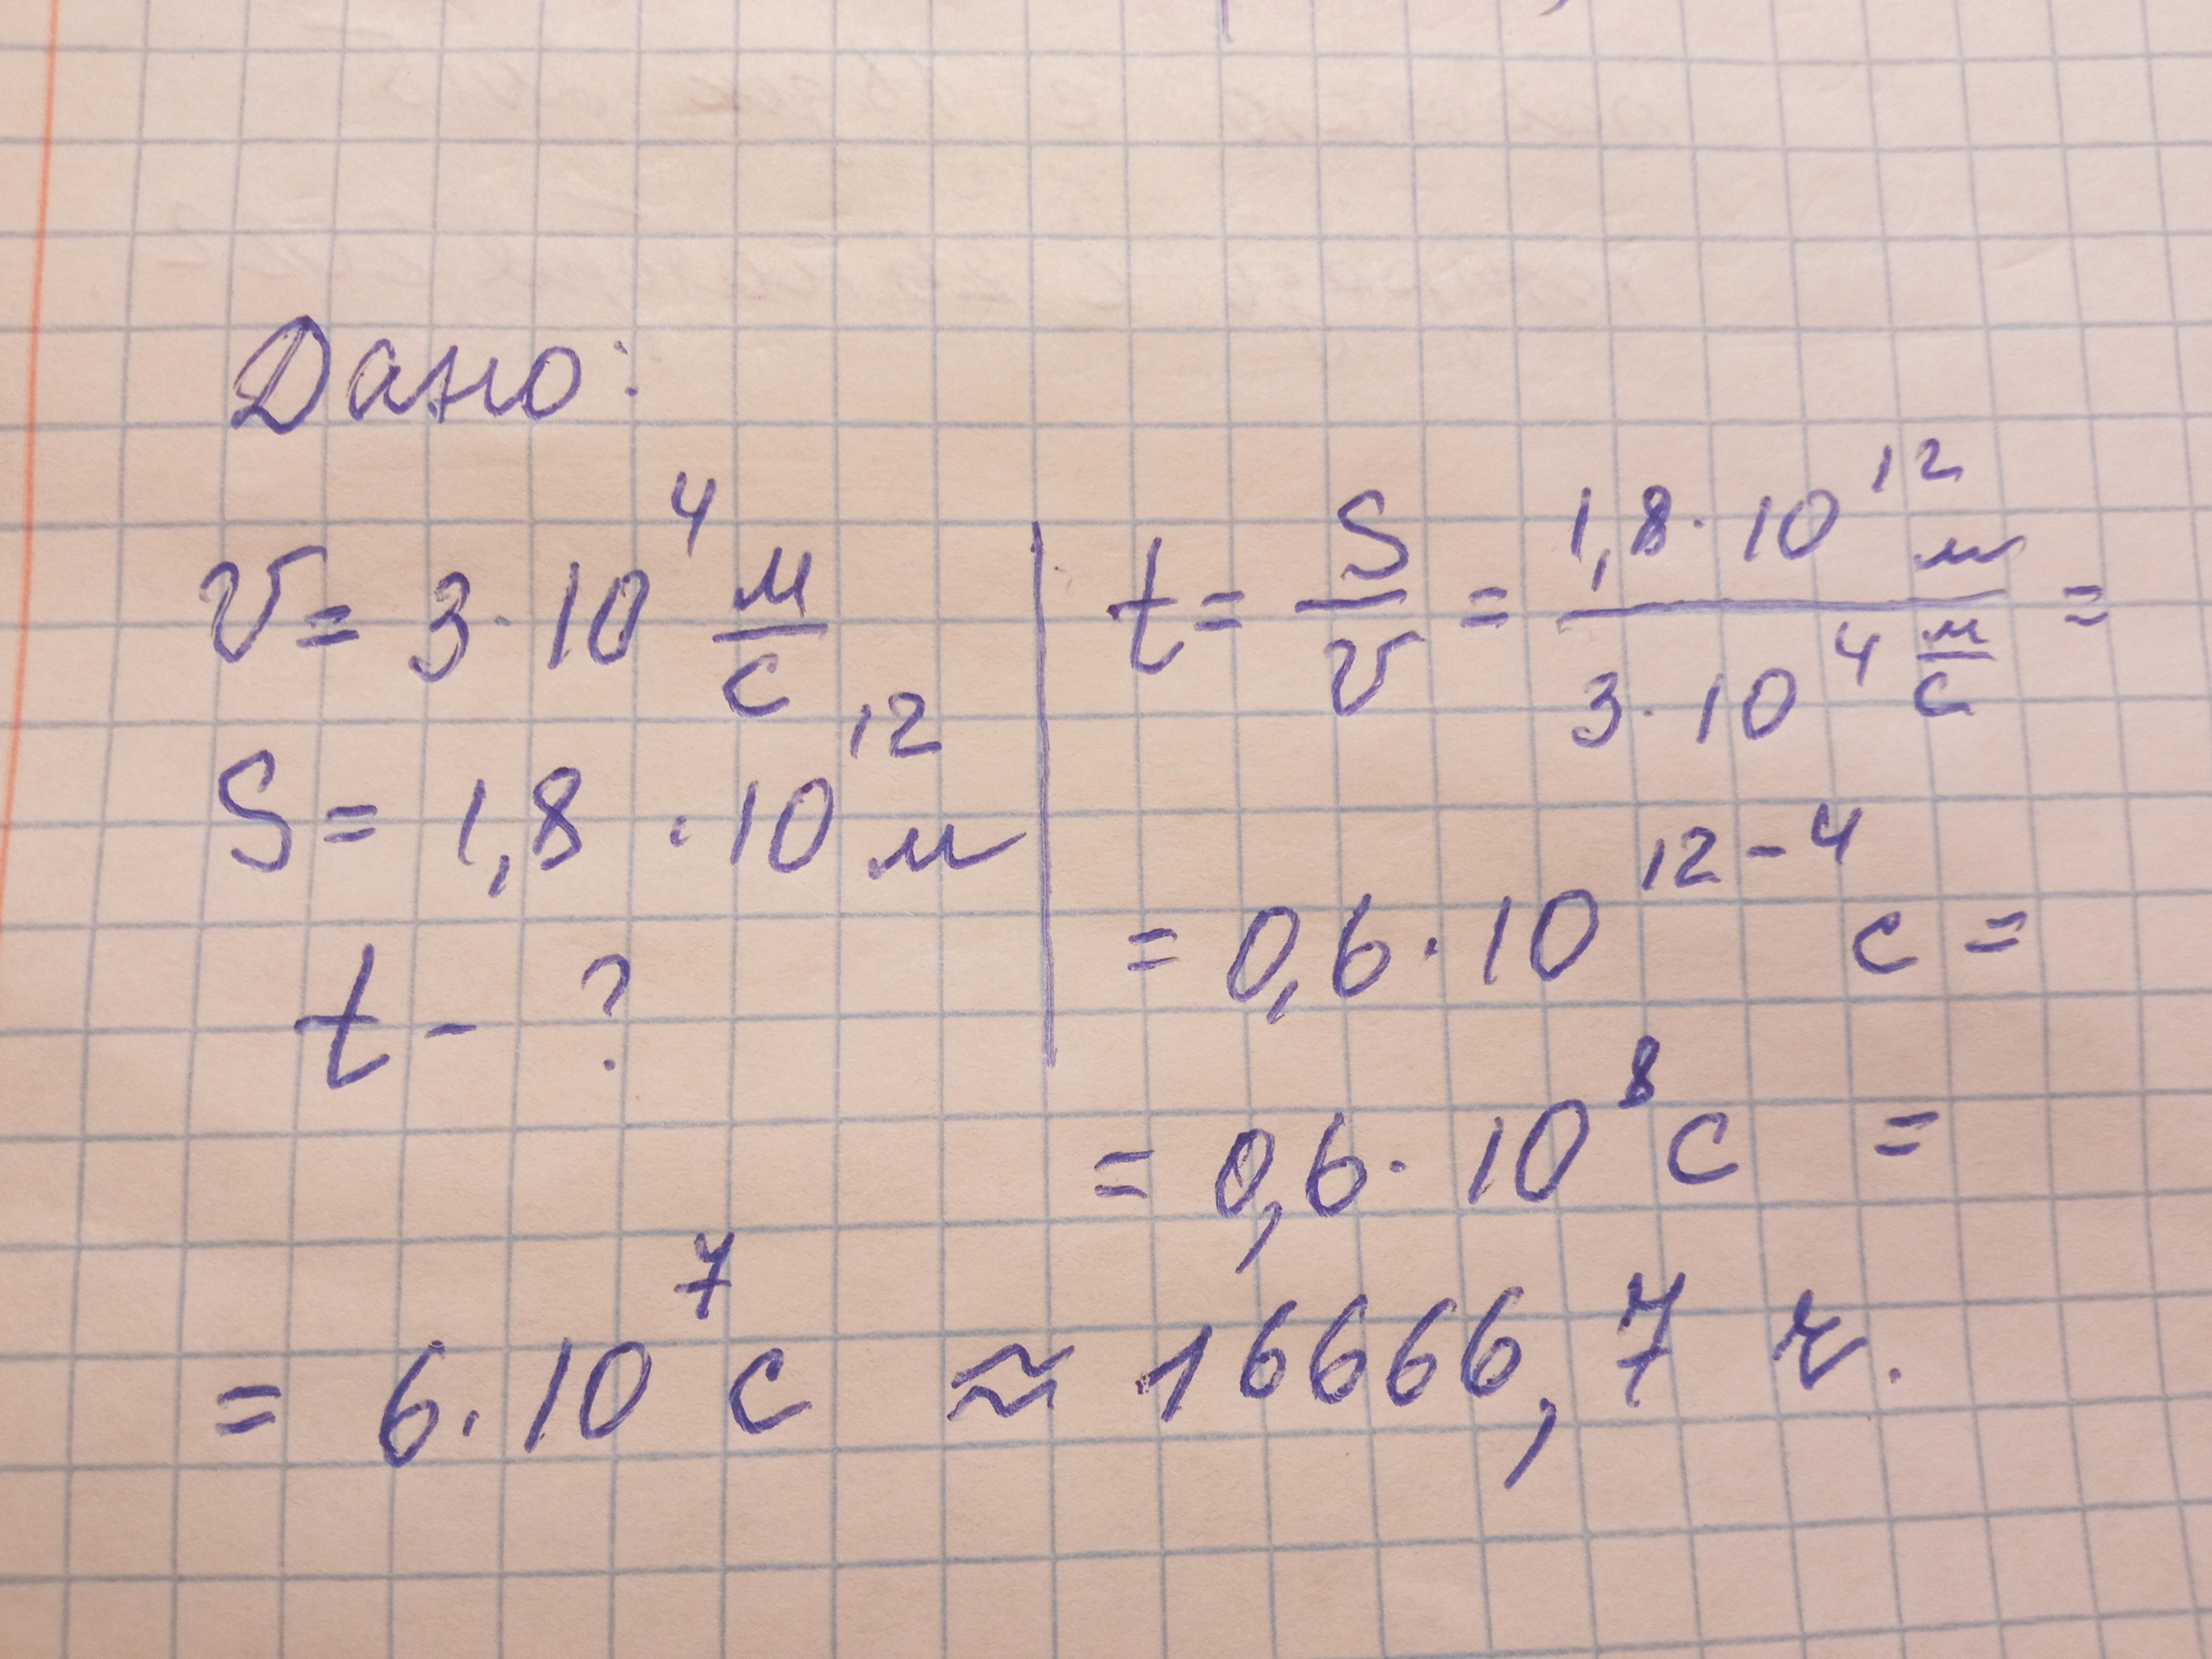 Дано:
v = 3 · 10⁴ м/с
S = 1,8 · 10¹² м
t - ?
t = S/v = 1,8 · 10¹² м / 3 · 10⁴ м/с =
= 0,6 · 10¹²⁻⁴ с =
= 0,6 · 10⁸ с =
= 6 · 10⁷ с ≈ 16666,7 ч.